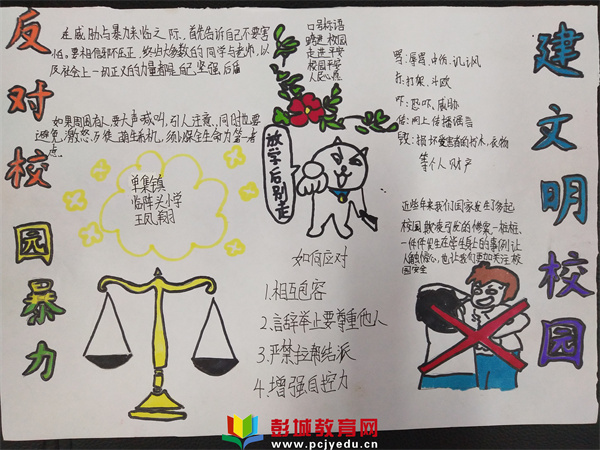 反对校园暴力
在威胁与暴力来临之际,首先告诉自己不要害
怕。要相信邪不压正,终归大多数的同学与老师,以
及社会上一切正义的力量都是自己坚强后盾
如果周围有人要大声喊叫,引人注意,同时也要
避免激怒歹徒
保全生命力第一考
虑。
单集镇
临阵头小学
王凤翔
口号标语
走进平安
校园平安
放学后别走
如何应对
1.相互包容
2.言辞举止要尊重他人
3.严禁拉帮结派
4.增强自控力
骂:辱骂、中伤、讥讽
打:打架、斗欧
吓:恐吓、威胁
传:网上传播谣言
毁:损坏受害者的书本、衣物
等个人财产
近些年来我们国家发生了多起
校园欺凌引发的惨案一桩桩、
一件件发生在学生身上的事例让
人触目惊心,也让我们更加关注校
园安全
建文明校园
彭城教育网
www.pcjyedu.cn